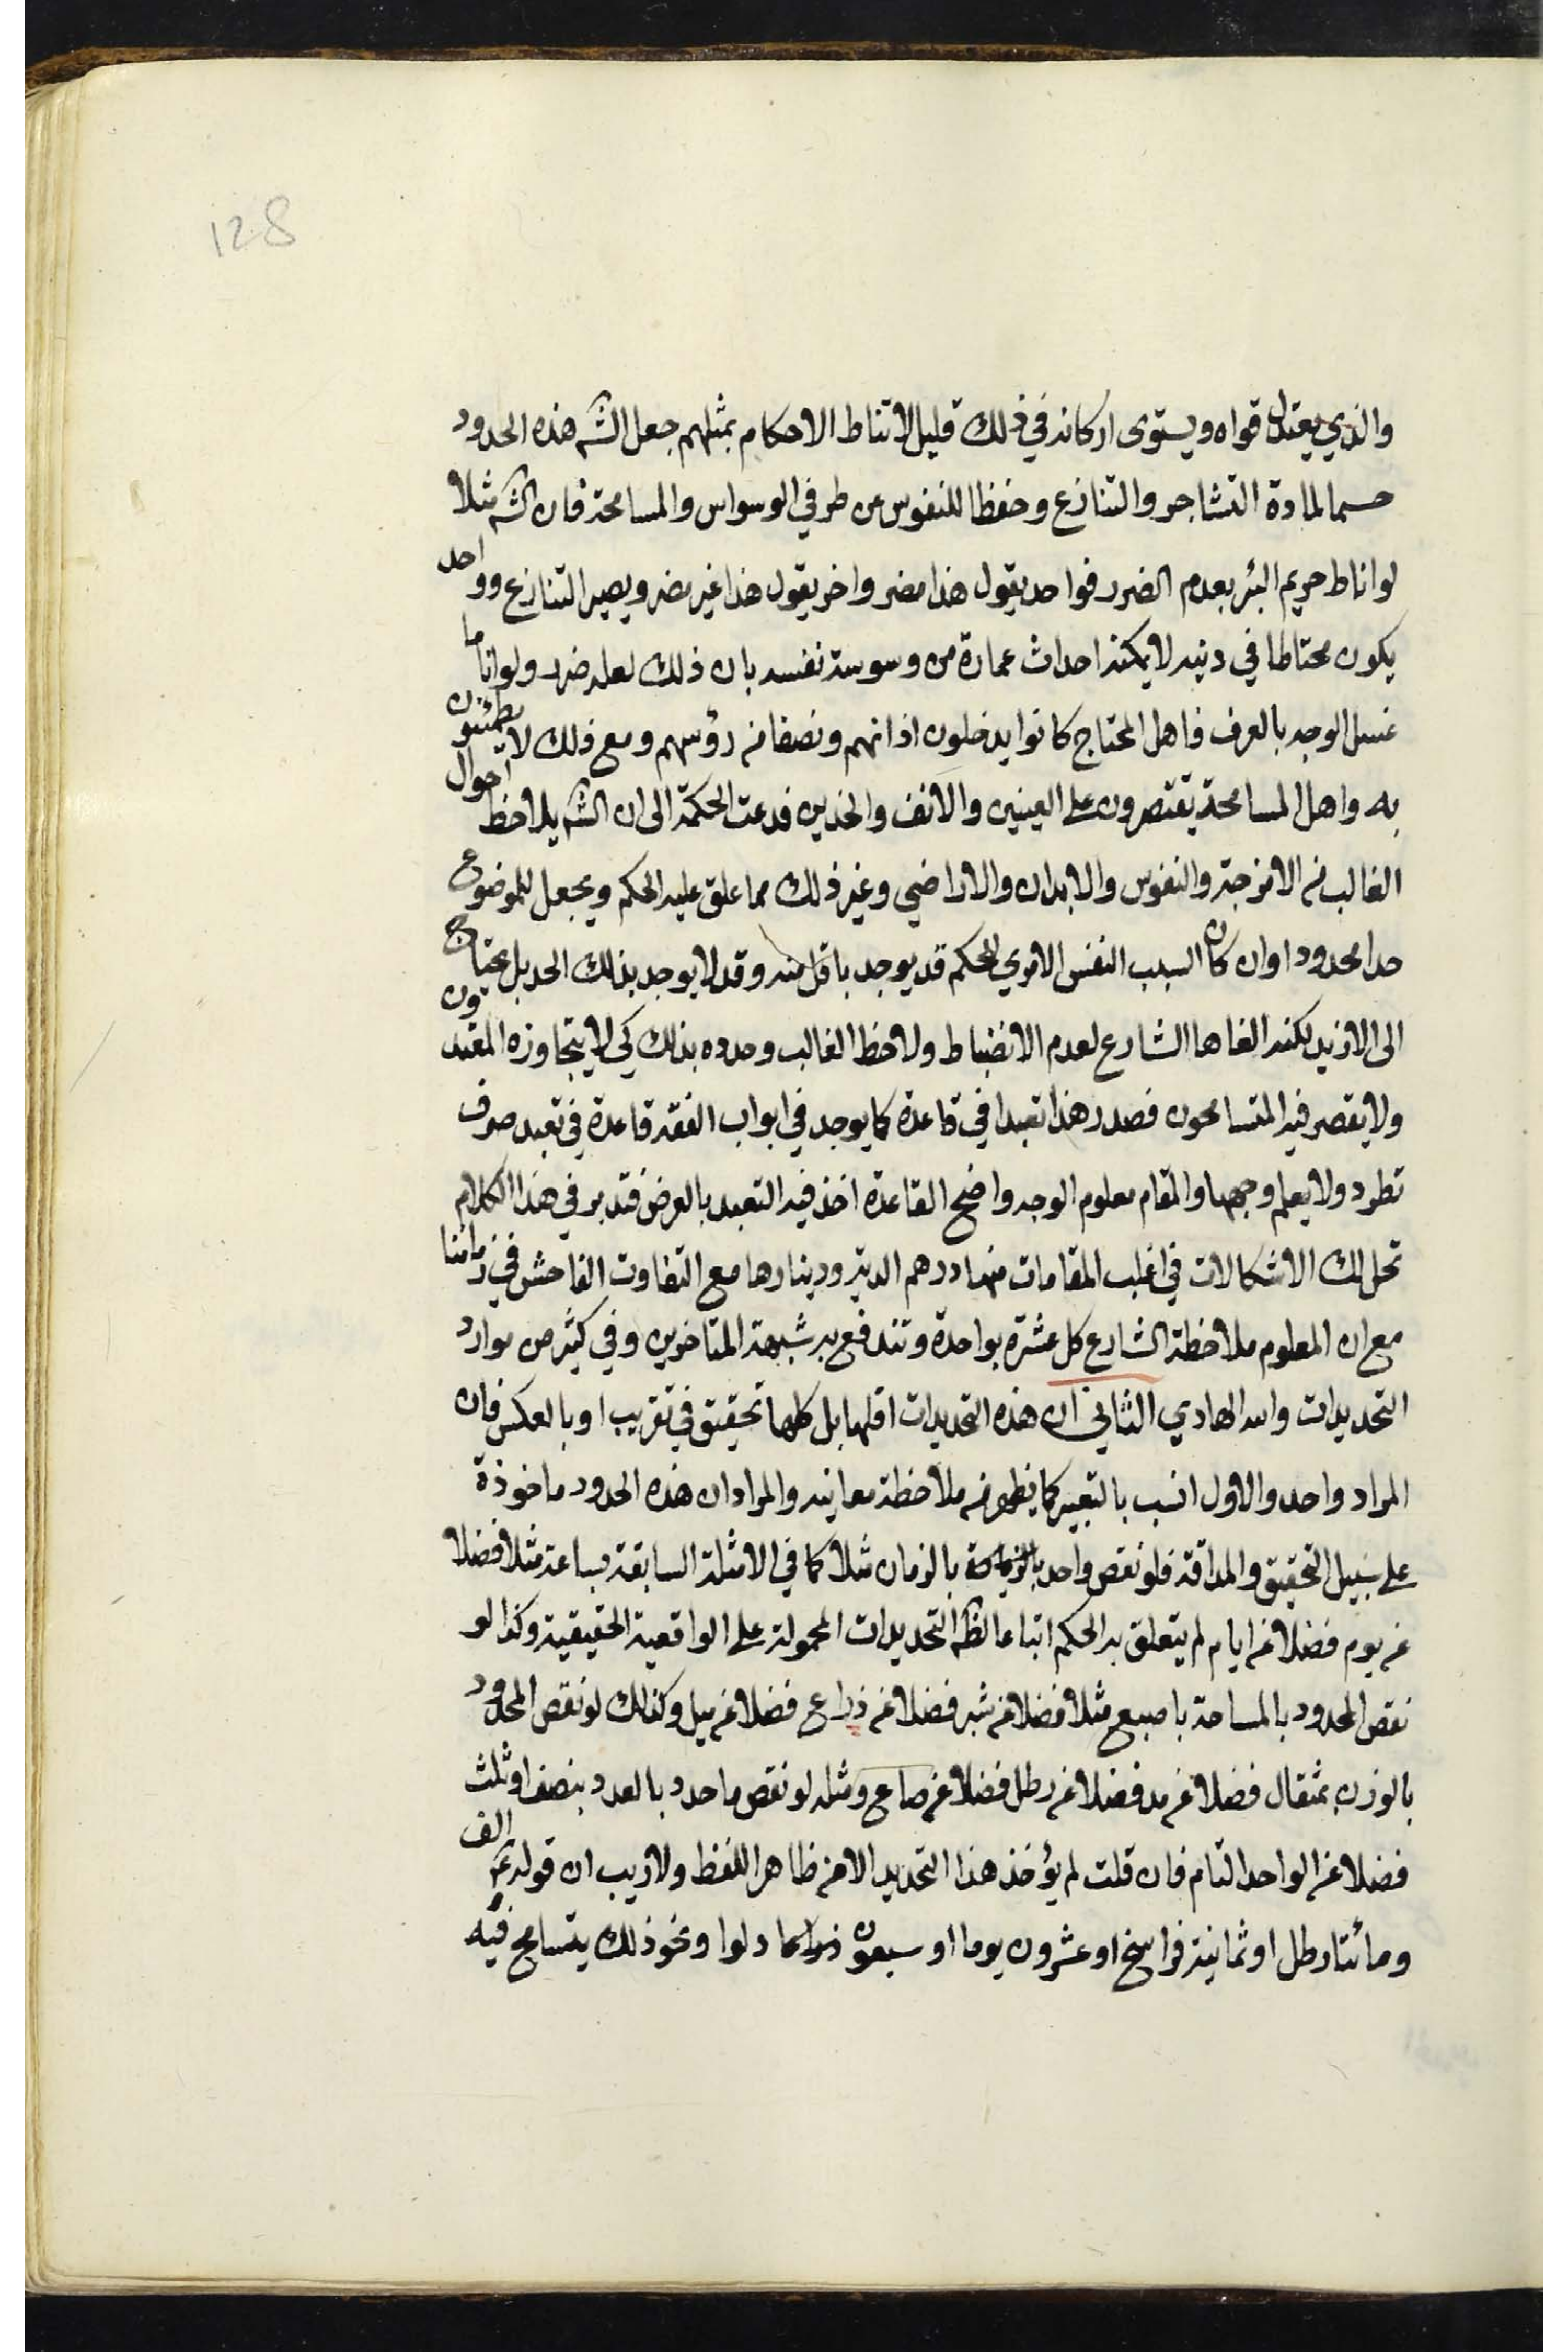 128
والذي يعتدل قواه ويستوى اركانه في ذلك قليل لا تناط الاحكام بمثلهم جعل الشه هذه الحدود
حسما لمادة التشاجر والتنازع وحفظا للنفوس من طرفي الوسواس والمسامحة فان الشه مثلا
لو اناط حريم البئر بعدم الضرر فواحد يقول هذا مضر واخر يقول هذا غير مضر ويصير التنازع وواحد
يكون محتاطا في دينه لا يمكنه احداث عمارة من وسوسة نفسه بان ذلك لعله ضرر ولو اناط
غسل الوجه بالعرف فاهل المحتاج كانوا يدخلون اذانهم ونصفا من رؤسهم ومع ذلك لا يطمئنون
به واهل المسامحة يقتصرون على العينين والانف والخدين فدعت الحكمة الى ان الشه يلاحظ احوال
الغالب من الامزجة والنفوس والابدان والاراضي وغير ذلك مما علق عليه الحكم ويجعل للموضوع
حدا محدودا وان كان السبب النفس الامري للحكم قد يوجد باقل منه وقد لا يوجد بذلك الحد بل يحتاج
الى الازيد لكنه الغاها الشارع لعدم الانضباط ولاحظ الغالب وحدده بذلك كي لا يتجاوزه المقتدون
ولا يقصر فيه المتسامحون فصدر هذا تعبدا في قاعدة كما يوجد في ابواب الفقه قاعدة في تعبد صرف
تطرد ولا يعلم وجهها والمقام معلوم الوجه واضح القاعدة اخذ فيه التعبد بالعرض فتدبر في هذا الكلام
تحل لك الاشكالات في اغلب المقامات منها درهم الدية ودينارها مع التفاوت الفاحش في زماننا
مع ان المعلوم ملاحظة الشارع كل عشرة بواحدة وتندفع به شبهة المتاخرين وفي كثير من موارد
التحديدات والله الهادي الثاني ان هذه التحديدات اقلها بل كلها تحقيق في تقريب او بالعكس فان
المراد واحد والاول انسب بالتعبير كما يظهر من ملاحظة معانيه والمراد ان هذه الحدود ماخوذة
على سبيل التحقيق والمداقة فلو نقص واحد بالزمان مثلا كما في الامثلة السابقة بساعة مثلا فضلا
عن يوم فضلا عن ايام لم يتعلق به الحكم اتباعا لظه التحديدات المحمولة على الواقعية الحقيقية وكذا لو
نقص المحدود بالمساحة باصبع مثلا فضلا عن شبر فضلا عن ذراع فضلا عن ميل وكذلك لو نقص المحدود
بالوزن بمثقال فضلا عن مد فضلا عن رطل فضلا عن صاع ومثله لو نقص ما حدد بالعدد بنصف او ثلث
فضلا عن الواحد التام فان قلت لم يؤخذ هذا التحديد الا من ظاهر اللفظ ولا ريب ان قوله ع الف
ومائتا رطل او ثمانية فراسخ او عشرون يوما او سبعون دلوا ونحو ذلك يتسامح فيه